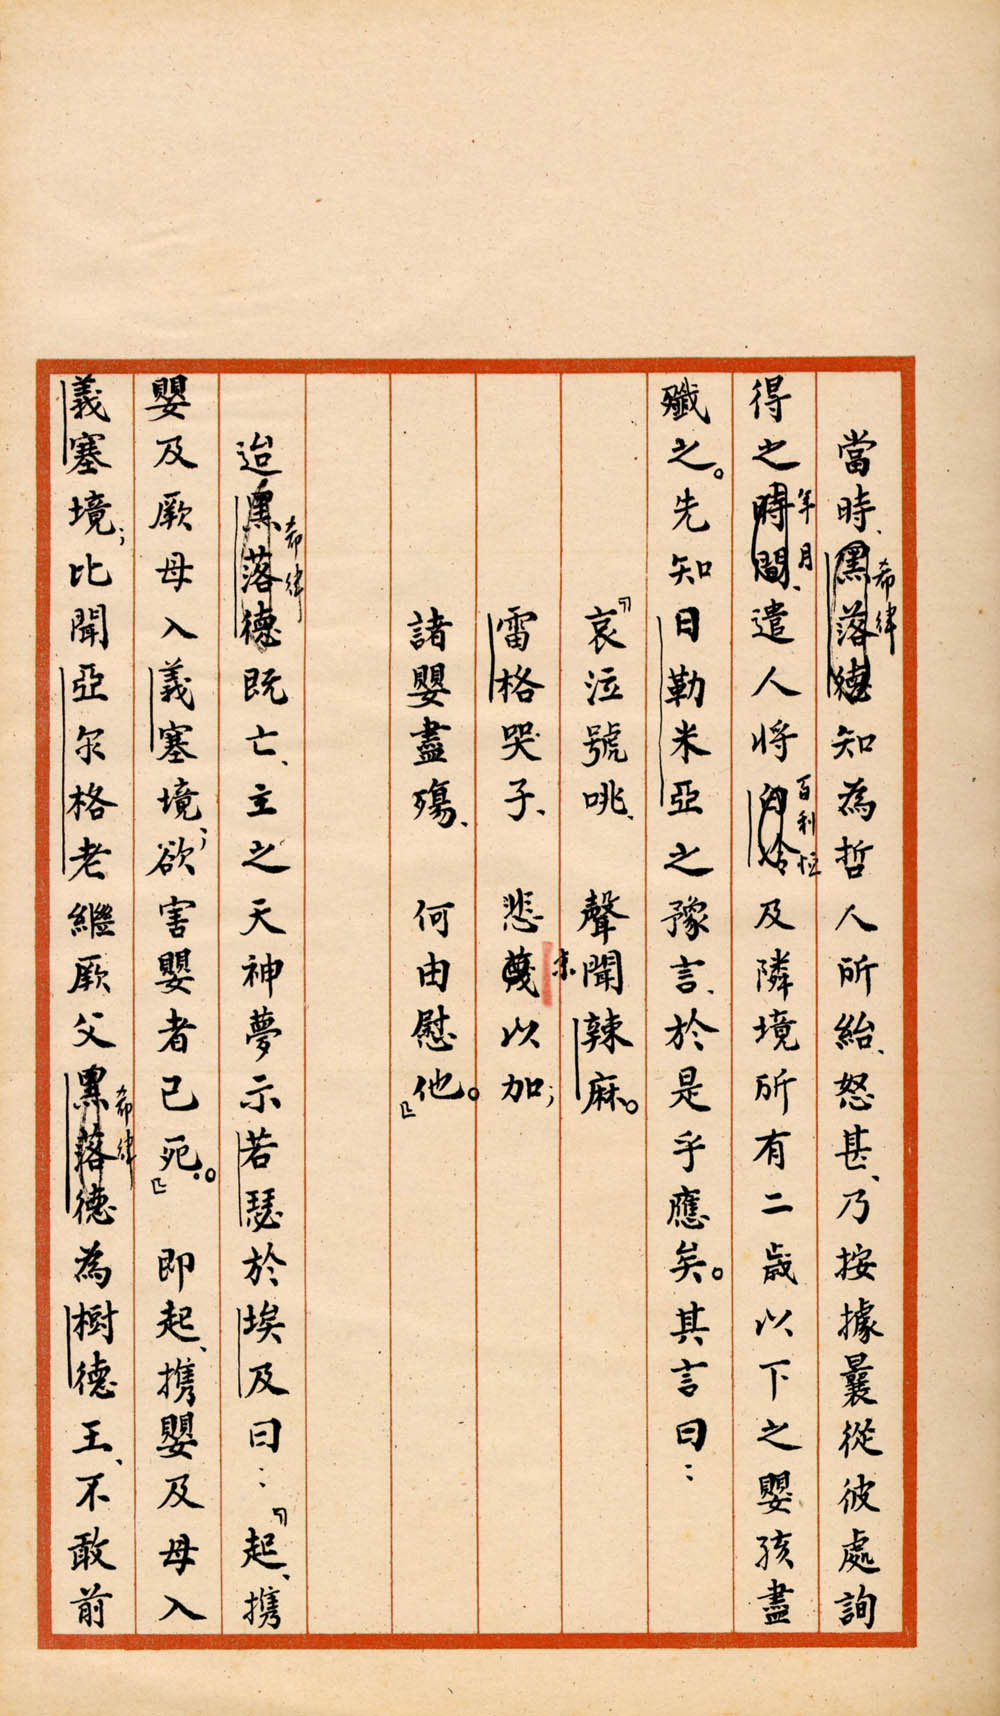 當時、黑落德知為哲人所紿、怒甚、乃按據曩從彼處詢
希律
得之時間、遣人將白冷及隣境所有二歲以下之嬰孩盡
年月
百利恒
殲之。先知日勒米亞之豫言、於是乎應矣。其言曰：
「哀泣號咷、　聲聞辣麻。
雷格哭子、　悲以加；
諸嬰盡殤、　何由慰他。」
迨黑落德既亡、主之天神夢示若瑟於埃及曰：「起、携
希律
嬰及厥母入義塞境；欲害嬰者已死。」　即起、携嬰及母入
義塞境；比聞亞尔格老繼厥父黑落德為樹德王、不敢前
希律